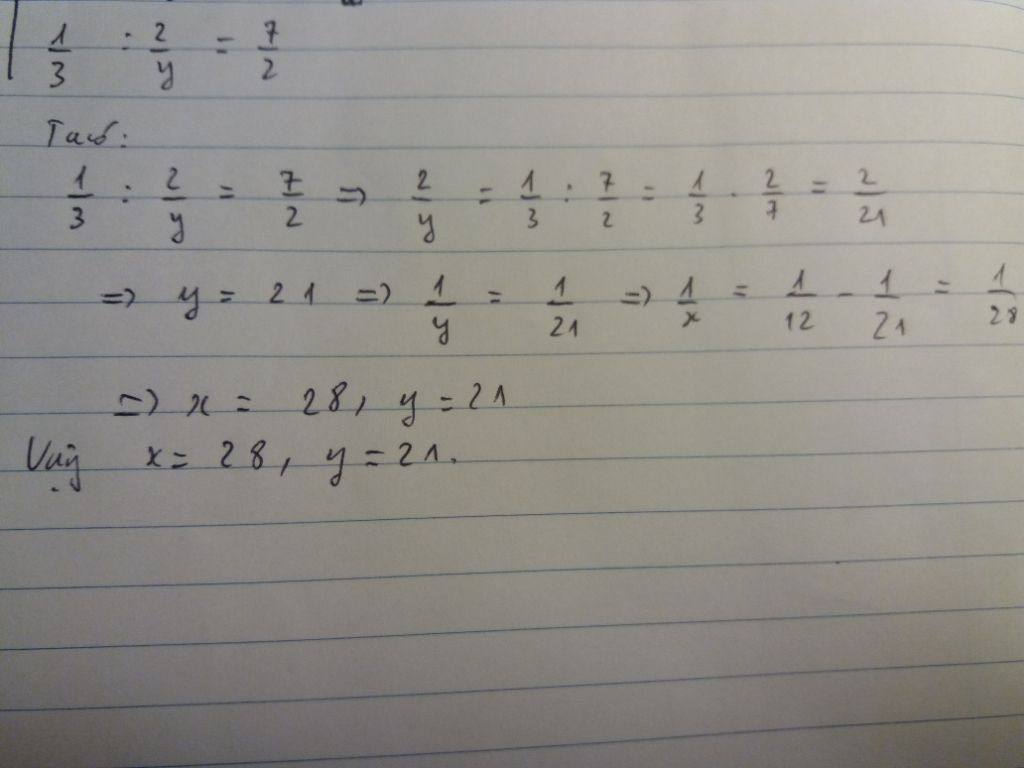 1/3 : 2/y = 7/2
Ta có:
1/3 : 2/y = 7/2 => 2/y = 1/3 : 7/2 = 1/3 . 2/7 = 2/21
=> y = 21 => 1/y = 1/21 => 1/x = 1/12 - 1/21 = 1/28
=> x = 28, y = 21
Vậy x = 28, y = 21.